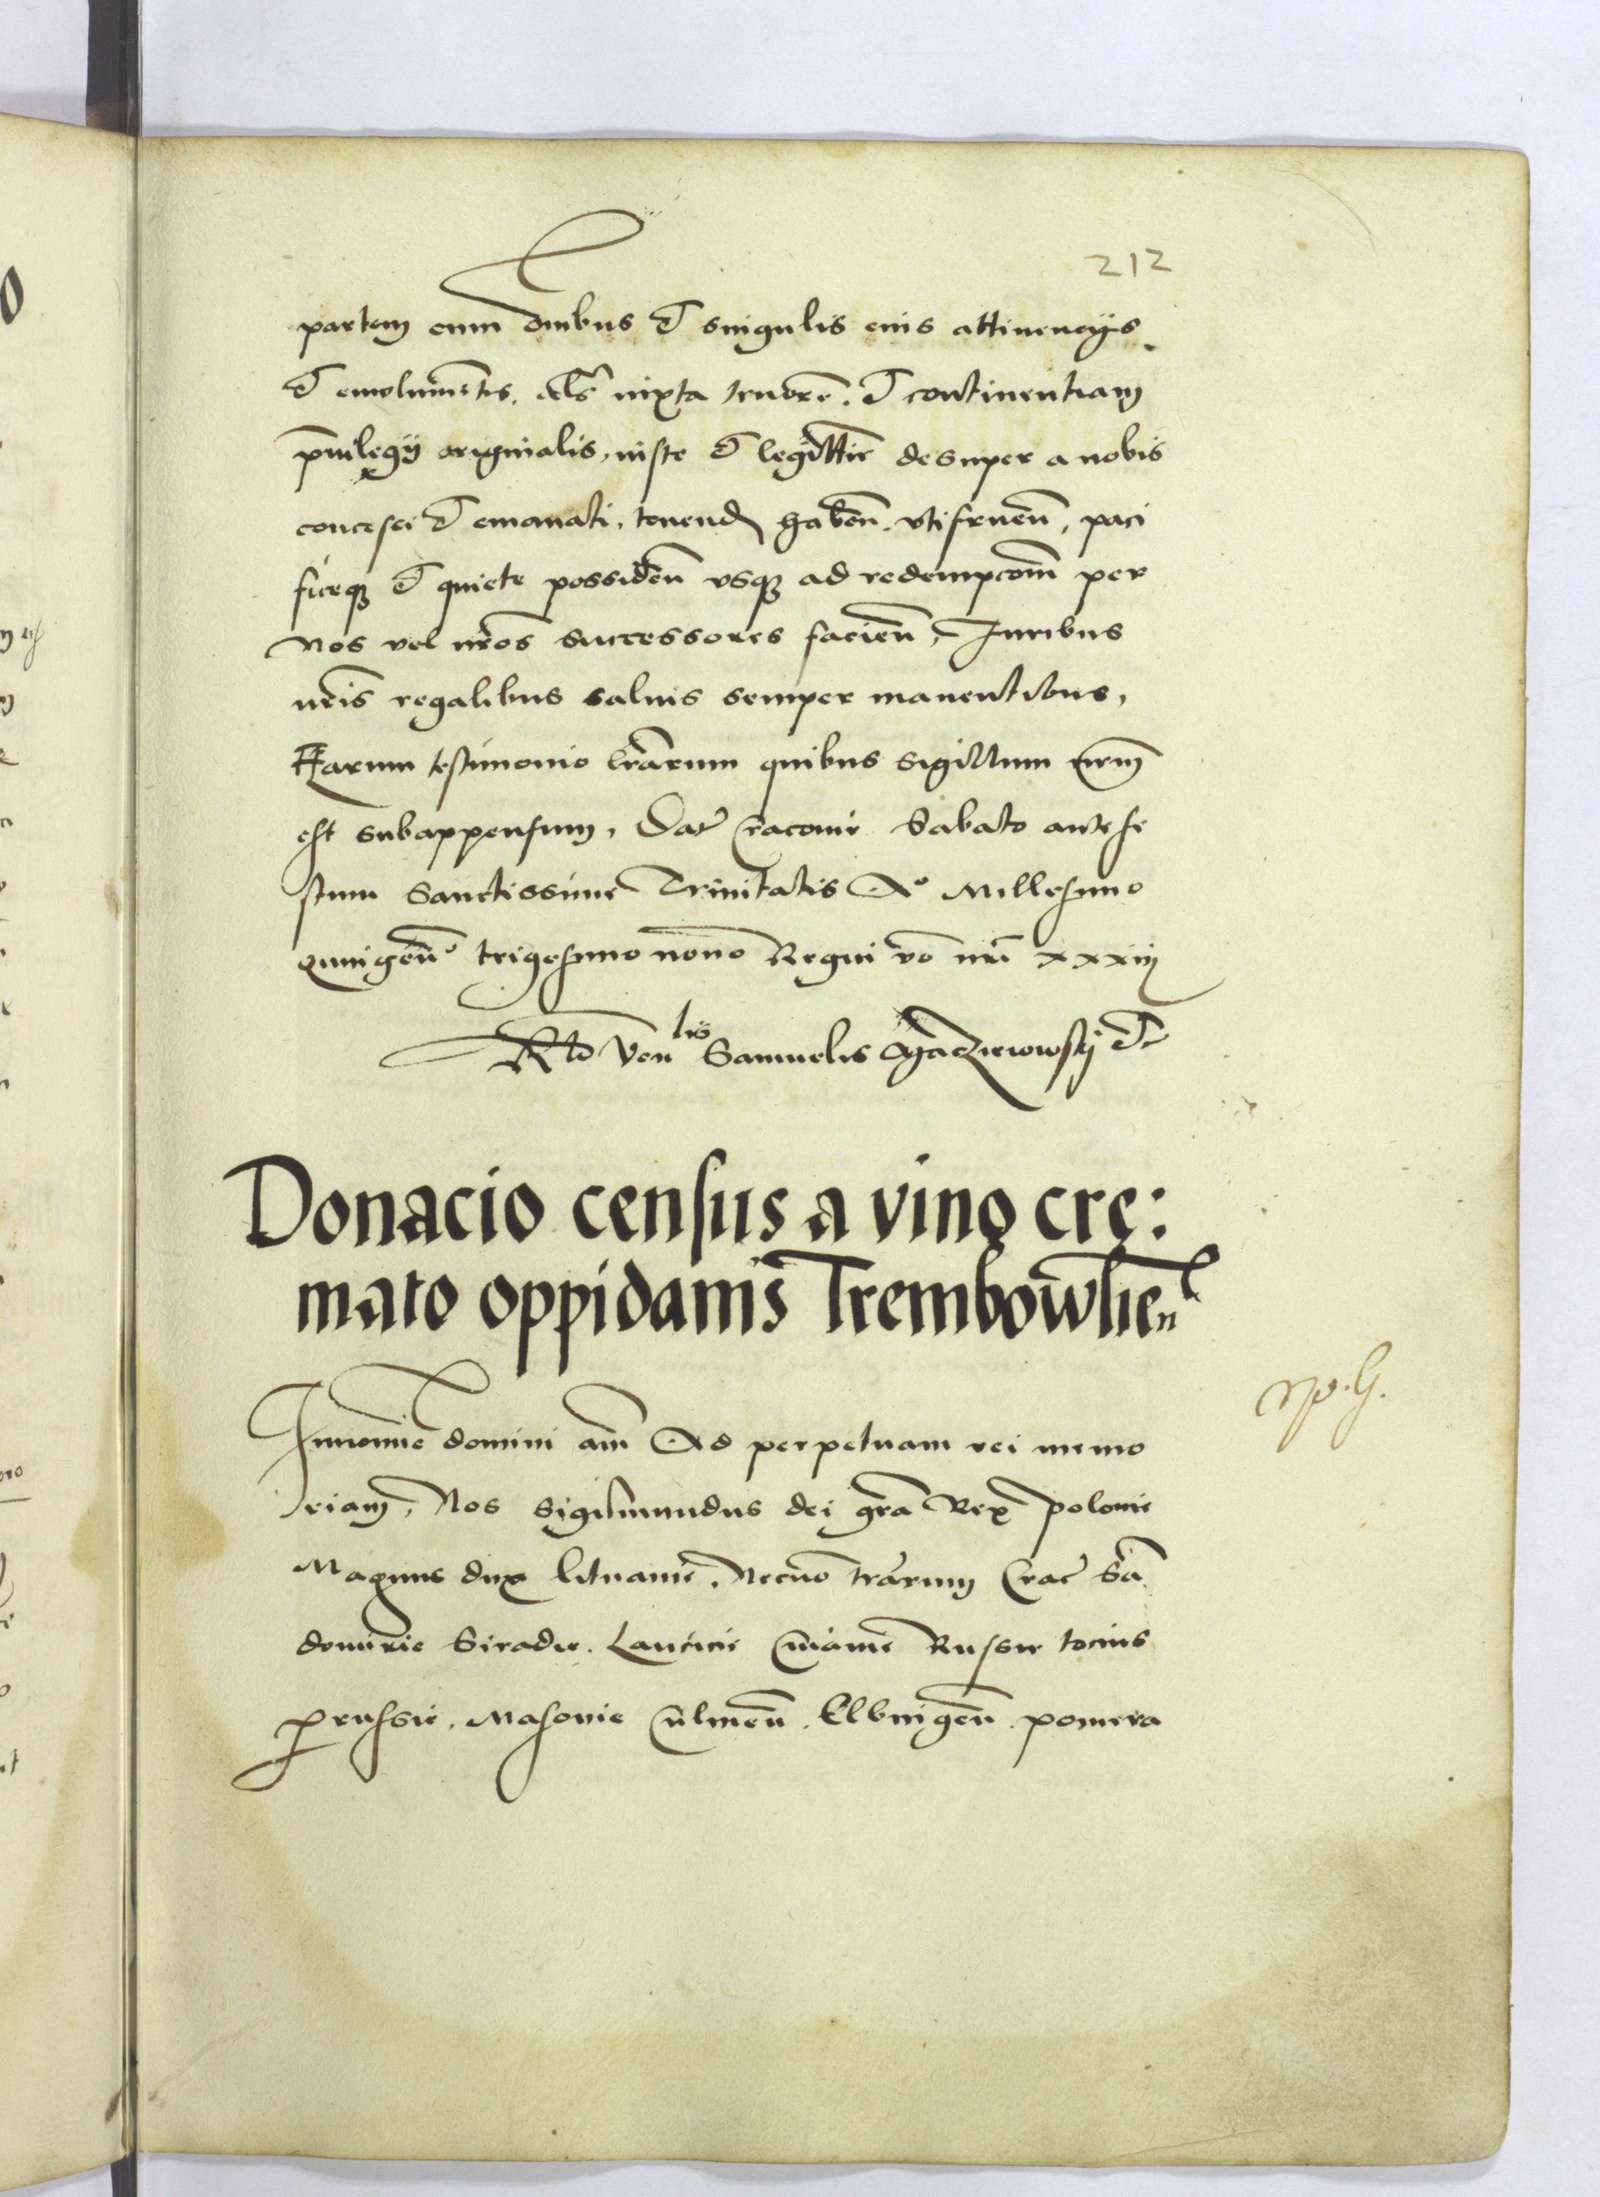 212
partem cum om̄ibus et singulis eius attinencijs
et emolumētis, als iuxta tenorē et continentiam
p̄uilegij originalis, iuste et legittie desuper a nobis
concessi et emanati, tenend haben̄ vtifruen̄, paci
ficeq et quiete possiden̄ vsq ad redempcōm per
Nos vel nr̄os successores facien̄, Iuribus
nr̄is regalibus saluis semper manentibus,
Harum testimonio lr̄arum quibus sigillum nrm̄
est subappensum, Dat Cracouie Sabato ante fe
stum Sanctissime Trinitatis Ao Millesimo
quingen̄o trigesimo nono Regni vo nr̄i xxxiij
Rlo Venlis Samuelis Maczieiowskj etc
Donacio census a vino cre:
mato oppidanis Trembowlien
In nomine domini am̄ Ad perpetuam rei memo
riam, Nos Sigismundus dei gr̄a Rex Polonie
Magnus dux Lituanie, Necno trārum Crac San
domirie Siradie Lancicie Cuiauie Russie tocius
Prussie, Masouie Culmen̄ Elbingen̄ pomera